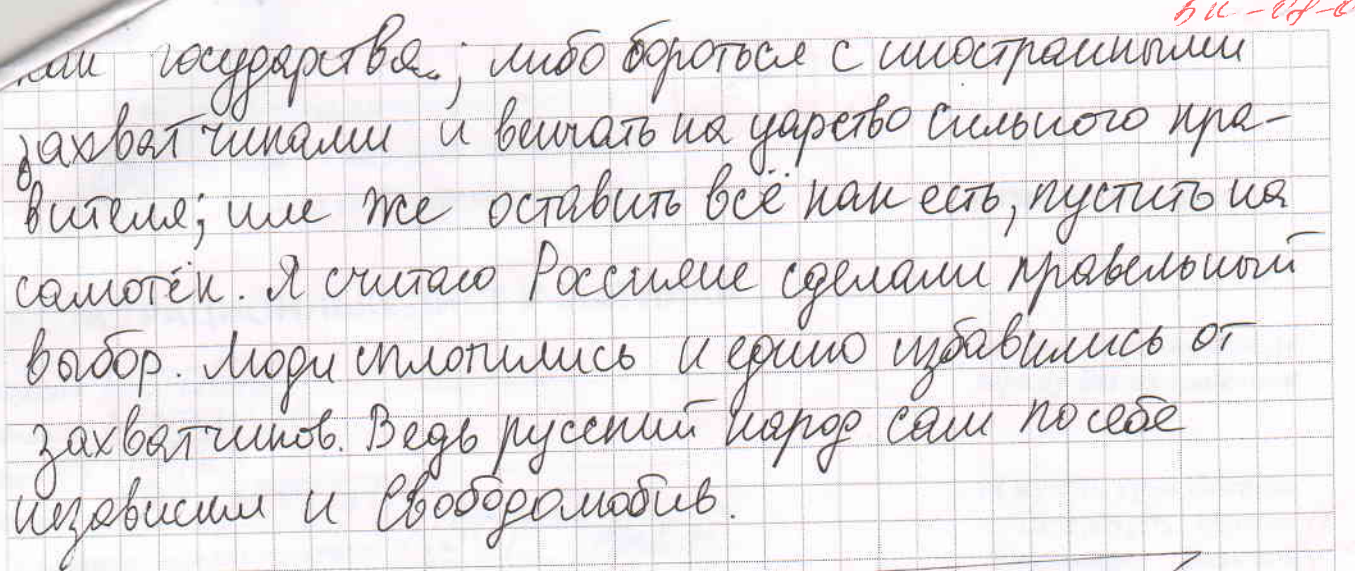 государства; либо бороться с иностранными
захватчиками и венчать на царство сильного пра-
вителя; иле же оставить всё как есть, пустить на
самотёк. Я считаю Россияне сделали правельный
выбор. Люди сплотились и едино избавились от
захватчиков. Ведь русский народ сам по себе
независим и свободолюбив.